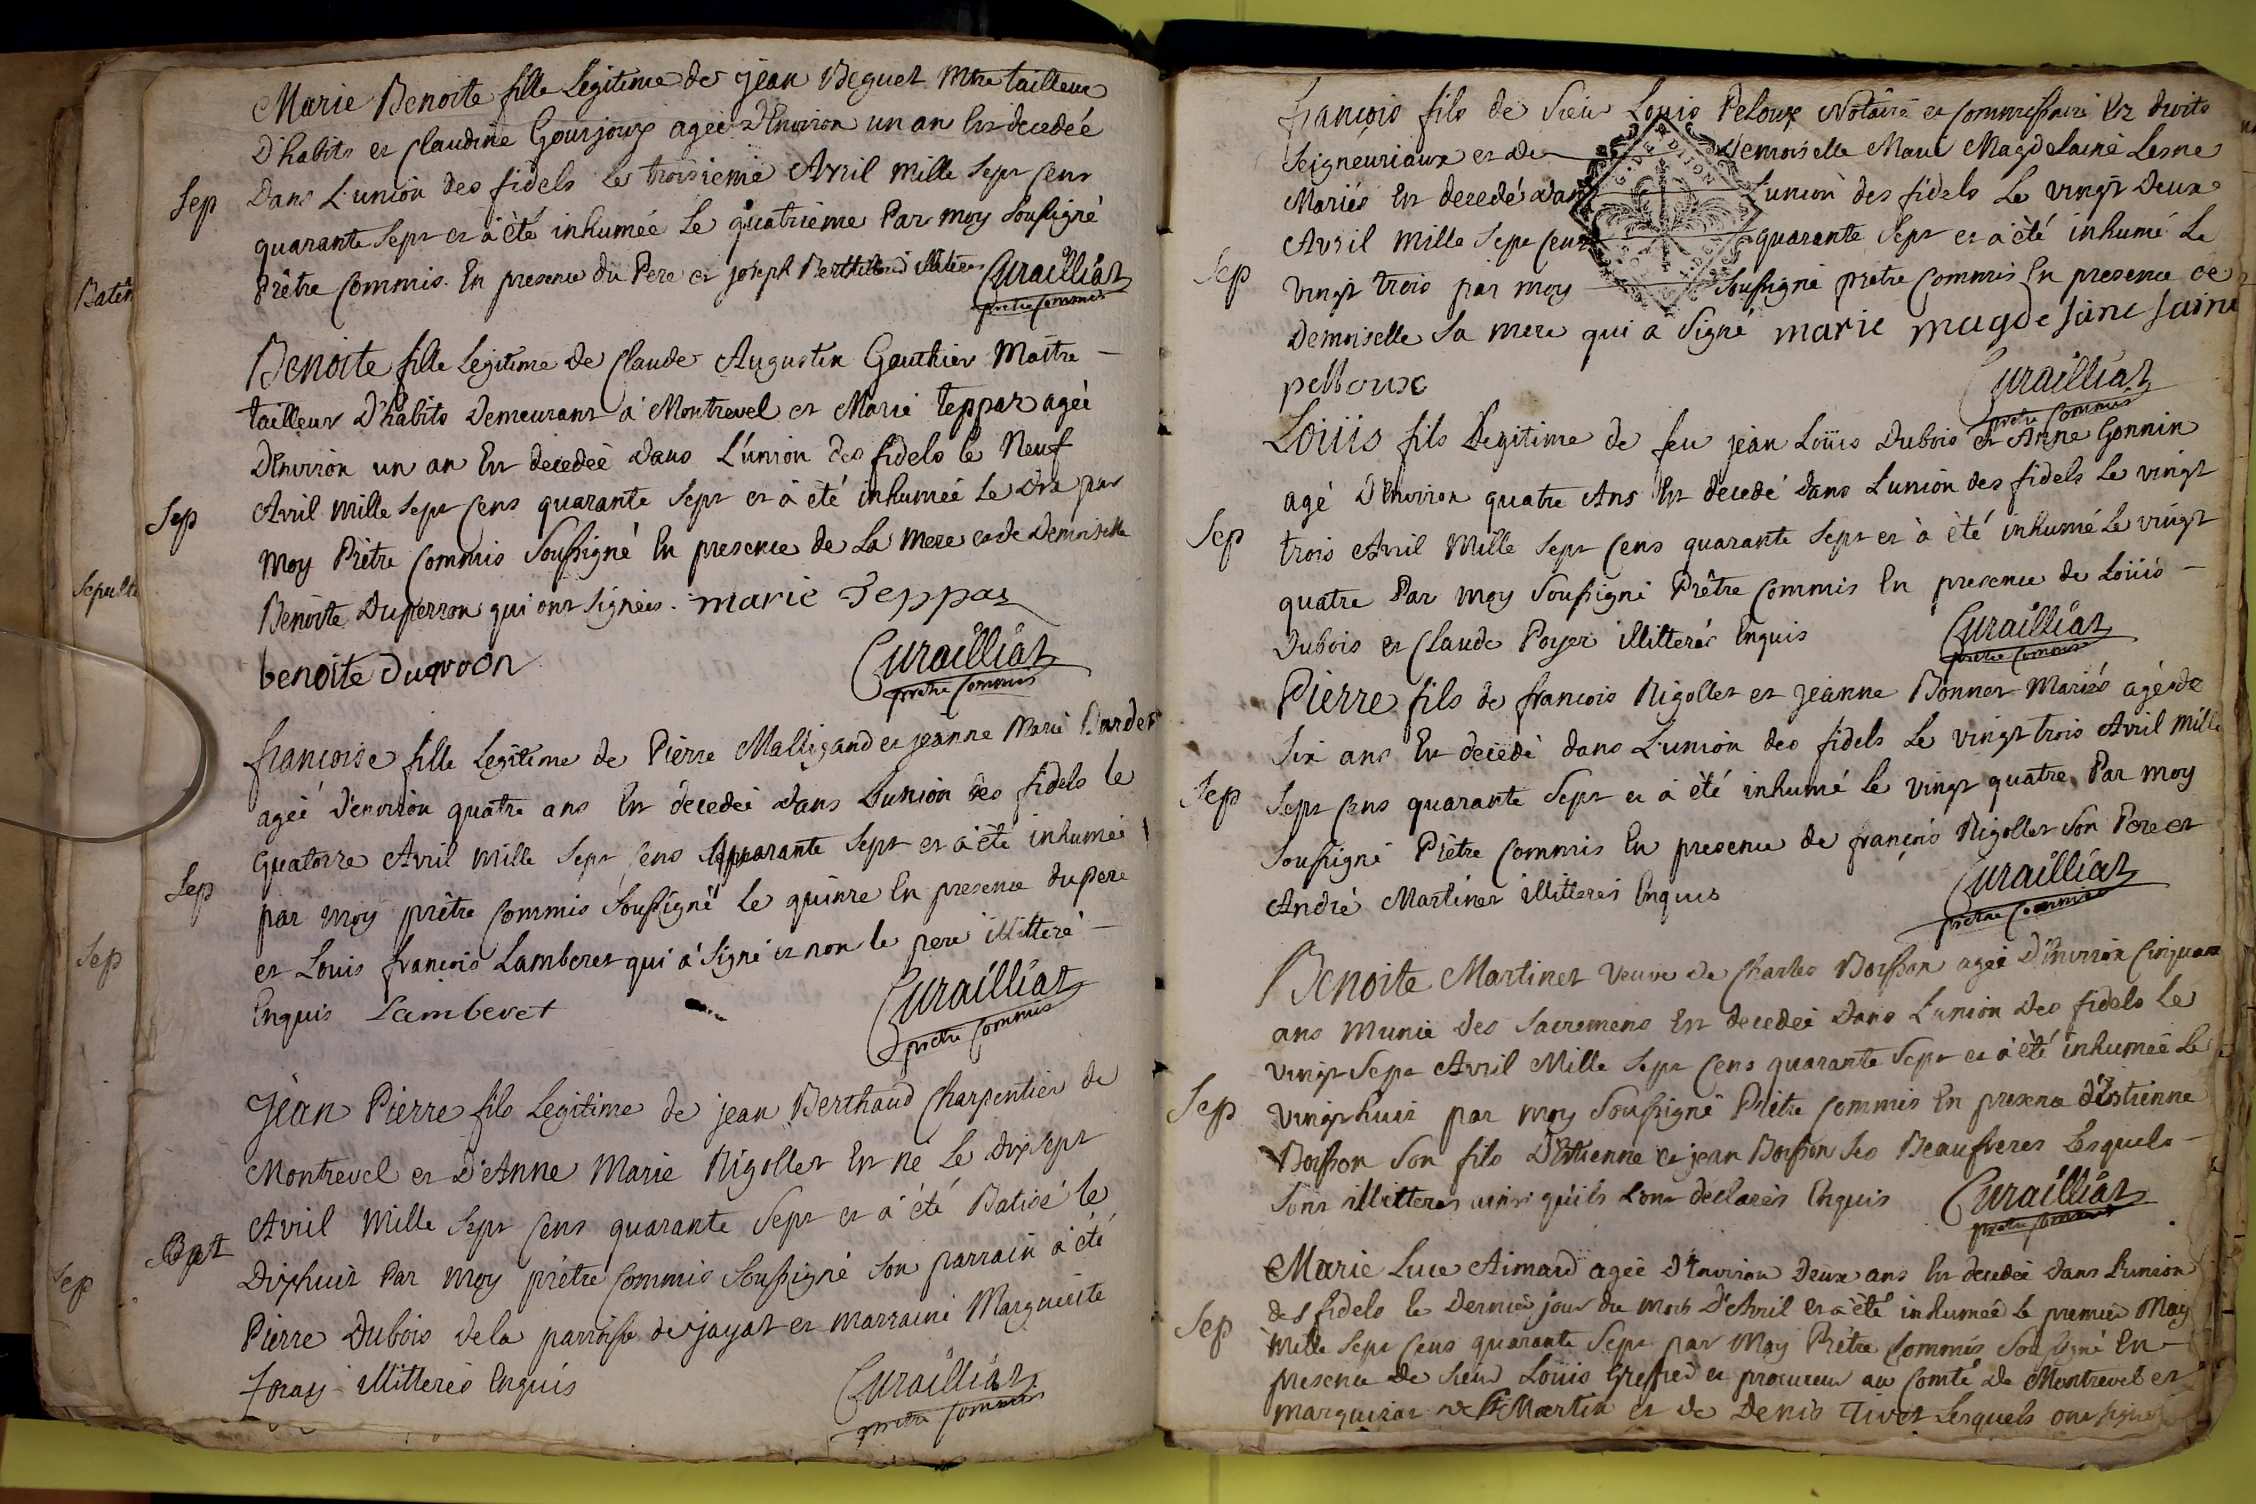 Marie Benoite fille Legitime de jean Beguet Mtre tailleur
D'habits et Claudine Gourjoux agée D'Environ un an Est decedéé
Dans L'union des fidels Le troisieme Avril mille Sept Cent
Sep
quarante Sept et à été inhumée Le quatrieme Par moy Soussigné
Prêtre Commis. En presence du Pere et joseph
Curailliat
prêtre Commis
Benoite fille Legitime de Claude Augustin Gauthier Maître
tailleur D'habits Demeurant à Montrevel et Marie Teppaz agéé
D'Environ un an Est decedéé Dans L'union des fidels le Neuf
Avril mille Sept Cens quarante Sept et à été inhumeé Le Dix par
Sep
Moy Prêtre Commis Soussigné En presence de La mere et de Demoiselle
Benoite Duperron qui ont Signées. marie Teppaz
benoite
Curailliat
prêtre Commis
francoise fille Legitime de Pierre Malligand et jeanne Marie
agéé D'environ quatre ans Est decedéé Dans L'union des fidels le
Quatorze Avril mille Sept Cens quarante Sept et à été inhumeé
Sep
par moy prêtre Commis Soussigné Le quinze En presence du pere
et Louis francois Lamberet qui à Signé et non le pere illitteré
Enquis Lamberet
Curailliat
prêtre Commis
Jean Pierre fils Legitime de jean Berthaud Charpentier de
Montrevel et D'Anne Marie Rigollet Est né Le Dix Sept
Avril Mille Sept Cens quarante Sept et à été Batisé le
Bapt
Dixhuit Par moy prêtre Commis Soussigné Son parrain à été
Pierre Dubois de la parroisse de jayat et marraine Marguerite
foray illitterés Enquis
Curailliat
prêtre Commis
Batê
Sepult
Sep
Sep
francois fils de Sieur Louis Peloux Notaire et Commissaire Es droits
Seigneuriaux et de Demoiselle Marie Magdelaine Lesne
Mariés Est decedé dans L'union des fidels Le vingt Deux
Avril mille Sept Cent quarante Sept et à été inhumé Le
Sep
vingt trois par moy Soussigné prêtre Commis En presence de
Demoiselle Sa mere qui a Signé marie magdelaine laine
pelloux
G. DE DIJON
Curailliat
prêtre Commis
Loüis fils Legitime de feu jean Loüis Dubois et Anne Gonnin
agé D'Environ quatre Ans Est decedé Dans L'union des fidels Le vingt
Sep
trois Avril Mille Sept Cens quarante Sept et à été inhumé Le vingt
quatre Par moy Soussigné Prêtre Commis En presence de Loüis
Dubois et Claude Poyet illitterés Enquis
Curailliat
prêtre Commis
Pierre fils de francois Rigollet et jeanne Bonnet Mariés agé de
Six ans Est decedé dans L'union des fidels Le vingt trois Avril mille
Sep
Sept Cens quarante Sept et à été inhumé Le vingt quatre Par moy
Soussigné Prêtre Commis En presence de françois Rigollet Son Pere et
André Martinet illitterés Enquis
Curailliat
prêtre Commis
Benoite Martinet Veuve de Charles Boisson agée D'Environ Cinquante
ans Munie des Sacremens Est decedeé Dans L'union Des fidels Le
vingt Sept Avril Mille Sept Cens quarante Sept et à été inhumeé Le
Sep
vingt huit par moy Soussigné Prêtre Commis En presence d'Estienne
Boisson Son fils D'Etienne et jean Boisson Ses Beaufreres Lesquels
Sont illitterés ainsi qu'ils L'ont declarés Enquis
Curailliat
prêtre Commis
Marie Luce Aimard agéé D'Environ Deux ans Est decedeé Dans L'union
des fidels le Dernier jour du mois D'Avril et à été inhumeé Le premier May
Sep
Mille Sept Cens quarante Sept par Moy Prêtre Commis Soussigné En
presence de Sieur Loüis Greffier et procureur au Comté de Montrevel et
marquisat de St Martin et de Denis Lesquels ont signé